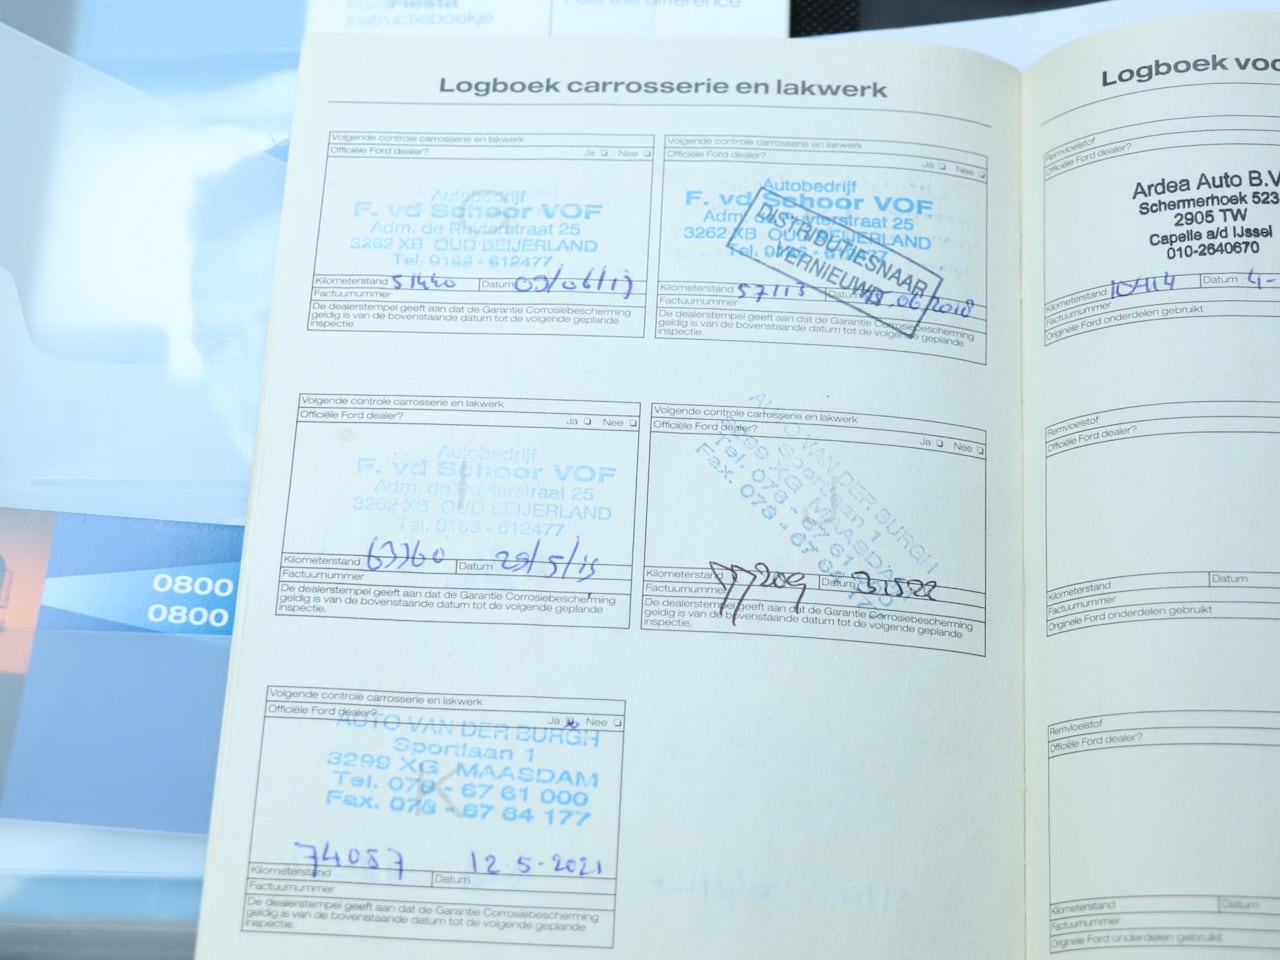 FordFiesta
instructieboekje
Feel the difference
0800
0800
Logboek carrosserie en lakwerk
Volgende controle carrosserie en lakwerk
Officiële Ford dealer? Ja Nee
Autobedrijf
F. vd Schoor VOF
Adm. de Ruyterstraat 25
3262 XB OUD BEIJERLAND
Tel. 0186 - 612477
Kilometerstand 51440 Datum
Factuurnummer
De dealerstempel geeft aan dat de Garantie Corrosiebescherming
geldig is van de bovenstaande datum tot de volgende geplande
inspectie.
Volgende controle carrosserie en lakwerk
Officiële Ford dealer? Ja Nee
Autobedrijf
F. vd Schoor VOF
Adm. de Ruyterstraat 25
3262 XB OUD BEIJERLAND
Tel. 0186 - 612477
DISTRIBUTIESNAAR
VERNIEUWD
Kilometerstand 57113 Datum 18.06/2018
Factuurnummer
De dealerstempel geeft aan dat de Garantie Corrosiebescherming
geldig is van de bovenstaande datum tot de volgende geplande
inspectie.
Volgende controle carrosserie en lakwerk
Officiële Ford dealer? Ja Nee
Autobedrijf
F. vd Schoor VOF
Adm. de Ruyterstraat 25
3262 XB OUD BEIJERLAND
Tel. 0186 - 612477
Kilometerstand 63760 Datum
Factuurnummer
De dealerstempel geeft aan dat de Garantie Corrosiebescherming
geldig is van de bovenstaande datum tot de volgende geplande
inspectie.
Volgende controle carrosserie en lakwerk
Officiële Ford dealer? Ja Nee
AUTO VAN DER BURGH
Sportlaan 1
3299 XG MAASDAM
Tel. 078 - 67 61 000
Fax. 078 - 67 64 177
Kilometerstand 77209 Datum
Factuurnummer
De dealerstempel geeft aan dat de Garantie Corrosiebescherming
geldig is van de bovenstaande datum tot de volgende geplande
inspectie.
Volgende controle carrosserie en lakwerk
Officiële Ford dealer? Ja Nee
AUTO VAN DER BURGH
Sportlaan 1
3299 XG MAASDAM
Tel. 078 - 67 61 000
Fax. 078 - 67 64 177
74057 12-5-2021
Kilometerstand Datum
Factuurnummer
De dealerstempel geeft aan dat de Garantie Corrosiebescherming
geldig is van de bovenstaande datum tot de volgende geplande
inspectie.
Logboek voo
Remvloeistof
Officiële Ford dealer?
Ardea Auto B.V
Schermerhoek 523
2905 TW
Capelle a/d IJssel
010-2640670
Kilometerstand Datum 4-
Factuurnummer
Originele Ford onderdelen gebruikt
Remvloeistof
Officiële Ford dealer?
Kilometerstand Datum
Factuurnummer
Originele Ford onderdelen gebruikt
Remvloeistof
Officiële Ford dealer?
Kilometerstand Datum
Factuurnummer
Originele Ford onderdelen gebruikt